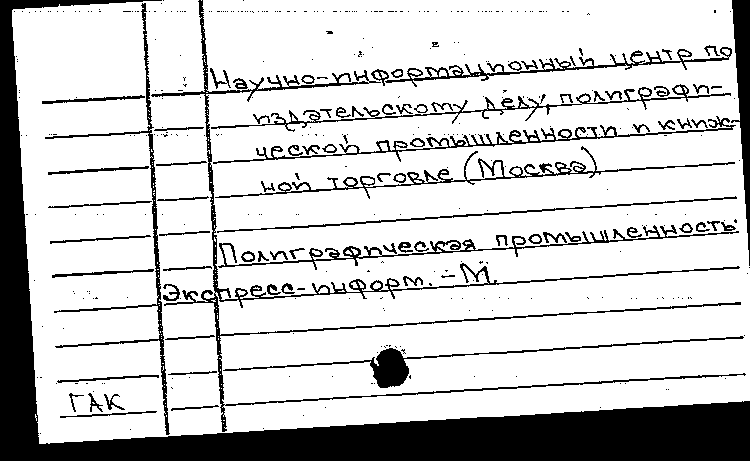 Научно-информационный центр по
издательскому делу, полиграфи-
ческой промышленности и книж-
ной торговле (Москва)
Полиграфическая промышленность:
Экспресс-информ. - М.
ГАК